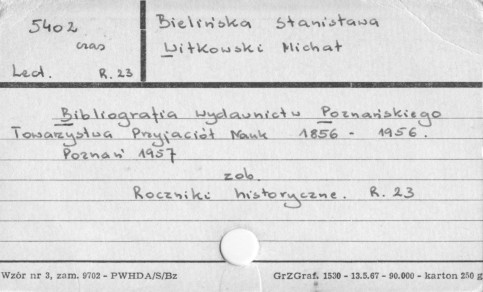 5402
czas
Lect. R. 23
Bielińska Stanisława
Witkowski Michał
Bibliografia wydawnictw Poznańskiego
Towarzystwa Przyjaciół Nauk 1856 - 1956.
Poznań 1957
zob.
Roczniki historyczne. R. 23
Wzór nr 3, zam. 9702 - PWHDA/S/Bz
GrZGraf. 1530 - 13.5.67 - 90.000 - karton 250 g